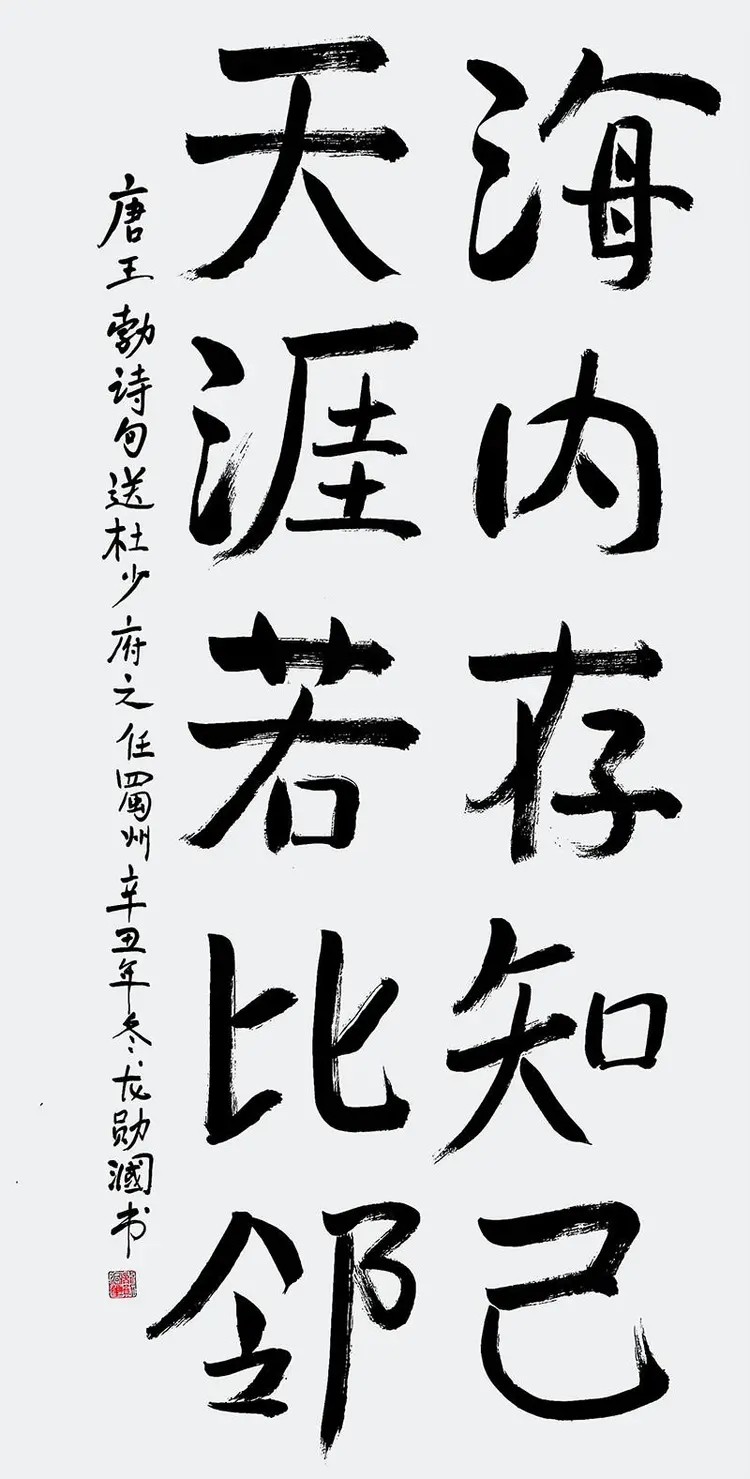 海内存知己
天涯若比邻
唐王勃诗句送杜少府之任蜀州辛丑年冬龙勋国书